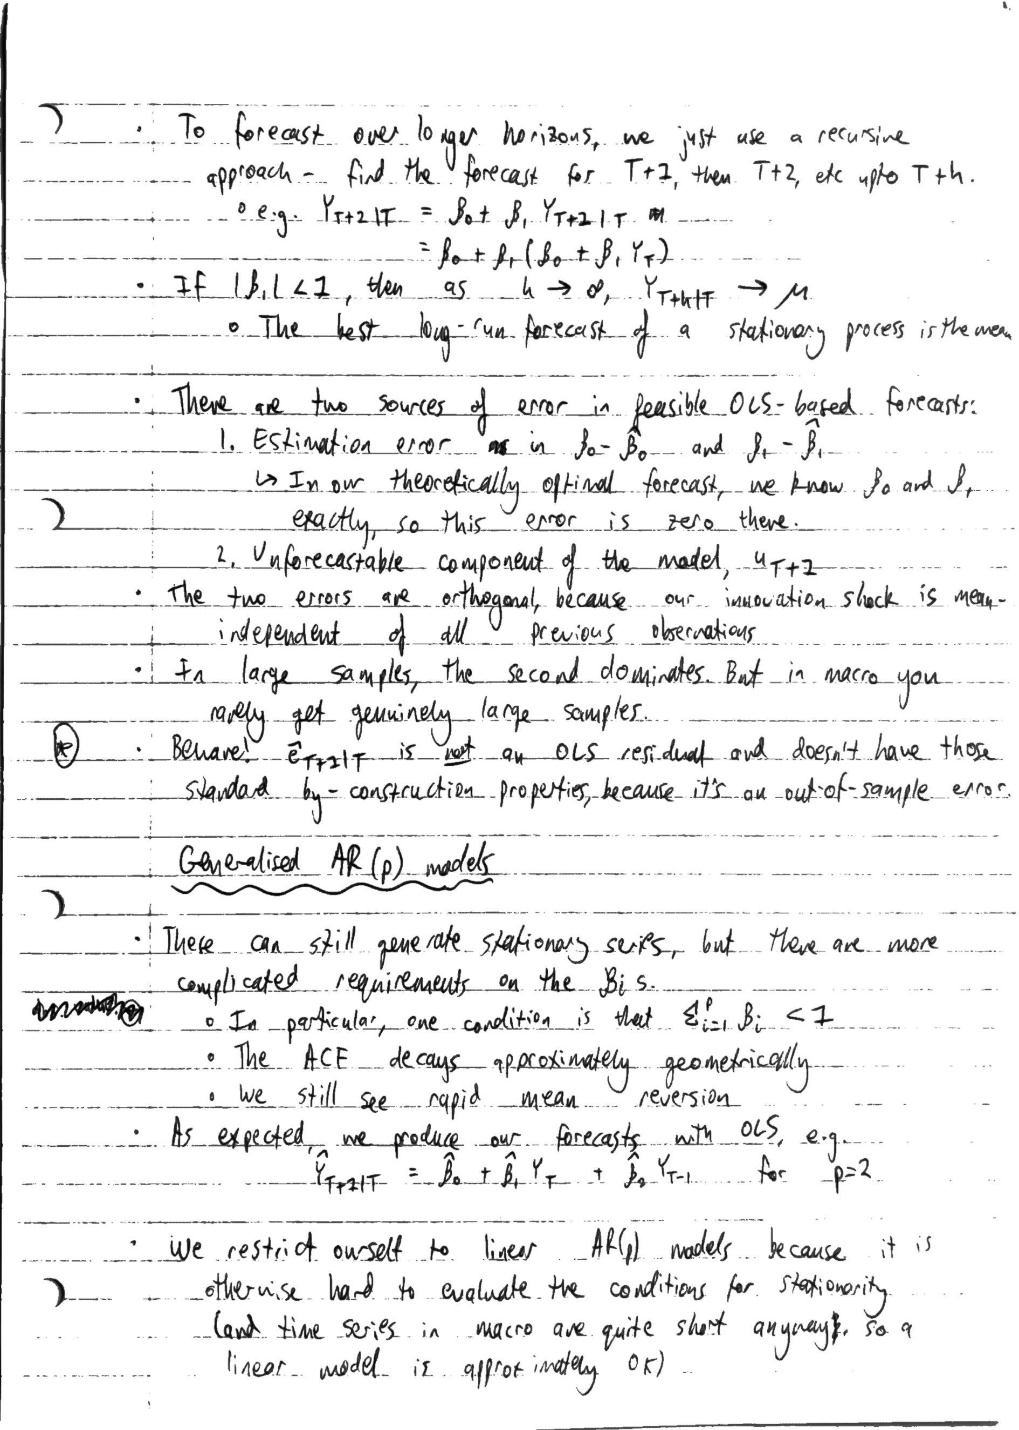 · To forecast over longer horizons, we just use a recursive
approach - find the forecast for T+1, then T+2, etc upto T+h.
o e.g. Y_{T+2|T} = β₀ + β₁ Y_{T+1|T}
= β₀ + β₁ (β₀ + β₁ Y_T)
· If |β₁| < 1, then as h → ∞, Y_{T+h|T} → μ
o The best long-run forecast of a stationary process is the mean
· There are two sources of error in feasible OLS-based forecasts:
1. Estimation error in β₀ - β̂₀ and β₁ - β̂₁
↳ In our theoretically optimal forecast, we know β₀ and β₁
exactly, so this error is zero there.
2. Unforecastable component of the model, u_{T+1}
· The two errors are orthogonal, because our innovation shock is mean-
independent of all previous observations
· In large samples, the second dominates. But in macro you
rarely get genuinely large samples.
* · Beware! ê_{T+1|T} is not an OLS residual and doesn't have those
standard by-construction properties, because it's an out-of-sample error.
Generalised AR(p) models
· These can still generate stationary series, but there are more
complicated requirements on the Bi s.
o In particular, one condition is that Σᵖᵢ₌₁ βᵢ < 1
o The ACF decays approximately geometrically
o We still see rapid mean reversion
· As expected, we produce our forecasts with OLS, e.g.
Ŷ_{T+1|T} = β̂₀ + β̂₁ Y_T + β̂₂ Y_{T-1} for p=2
· We restrict ourself to linear AR(p) models because it is
otherwise hard to evaluate the conditions for stationarity
(and time series in macro are quite short anyway, so a
linear model is approximately OK)